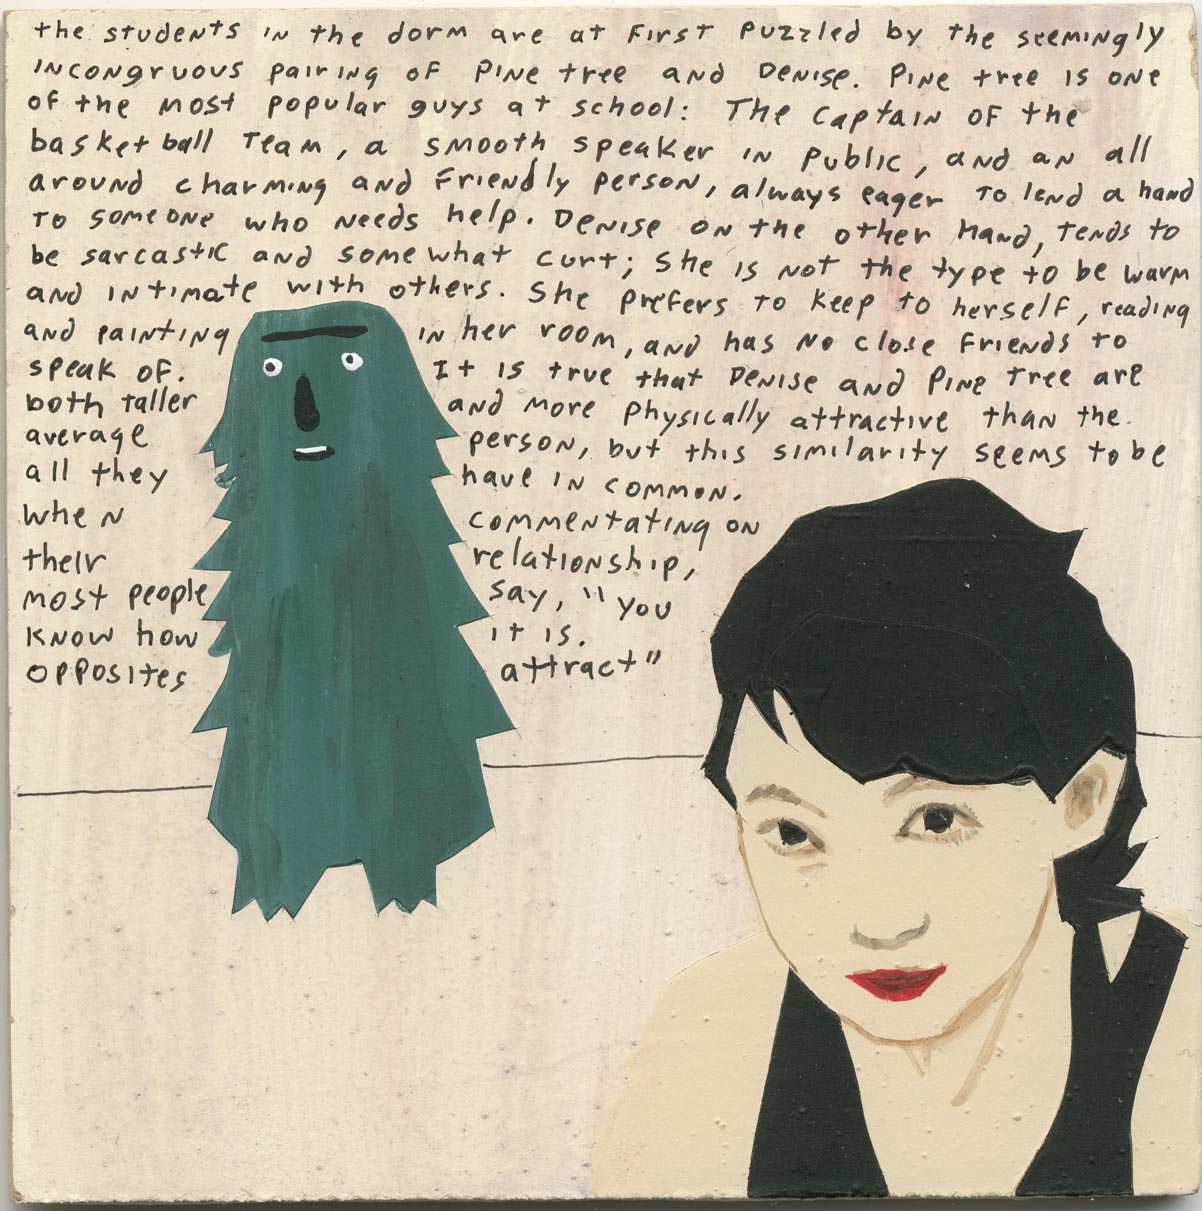 the students in the dorm are at first puzzled by the seemingly
incongruous pairing of Pine tree and Denise. Pine tree is one
of the most popular guys at school: The captain of the
basketball team, a smooth speaker in public, and an all
around charming and friendly person, always eager to lend a hand
to someone who needs help. Denise on the other hand, tends to
be sarcastic and somewhat curt; she is not the type to be warm
and intimate with others. She prefers to keep to herself, reading
and painting in her room, and has no close friends to
speak of. It is true that Denise and Pine Tree are
both taller and more physically attractive than the
average person, but this similarity seems to be
all they have in common.
When commentating on
their relationship,
most people say, "you
know how it is.
opposites attract"